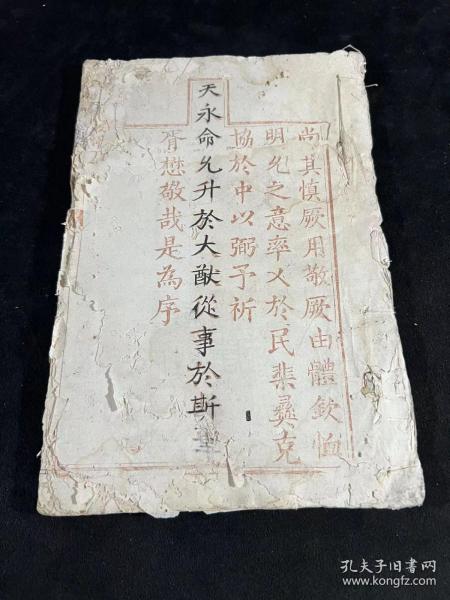 尚其慎厥用敬厥由體欽恤
明允之意率乂於民棐彞克
協於中以弼予祈
天永命允升於大猷從事於斯
胥懋敬哉是為序
孔夫子旧书网
www.kongfz.com